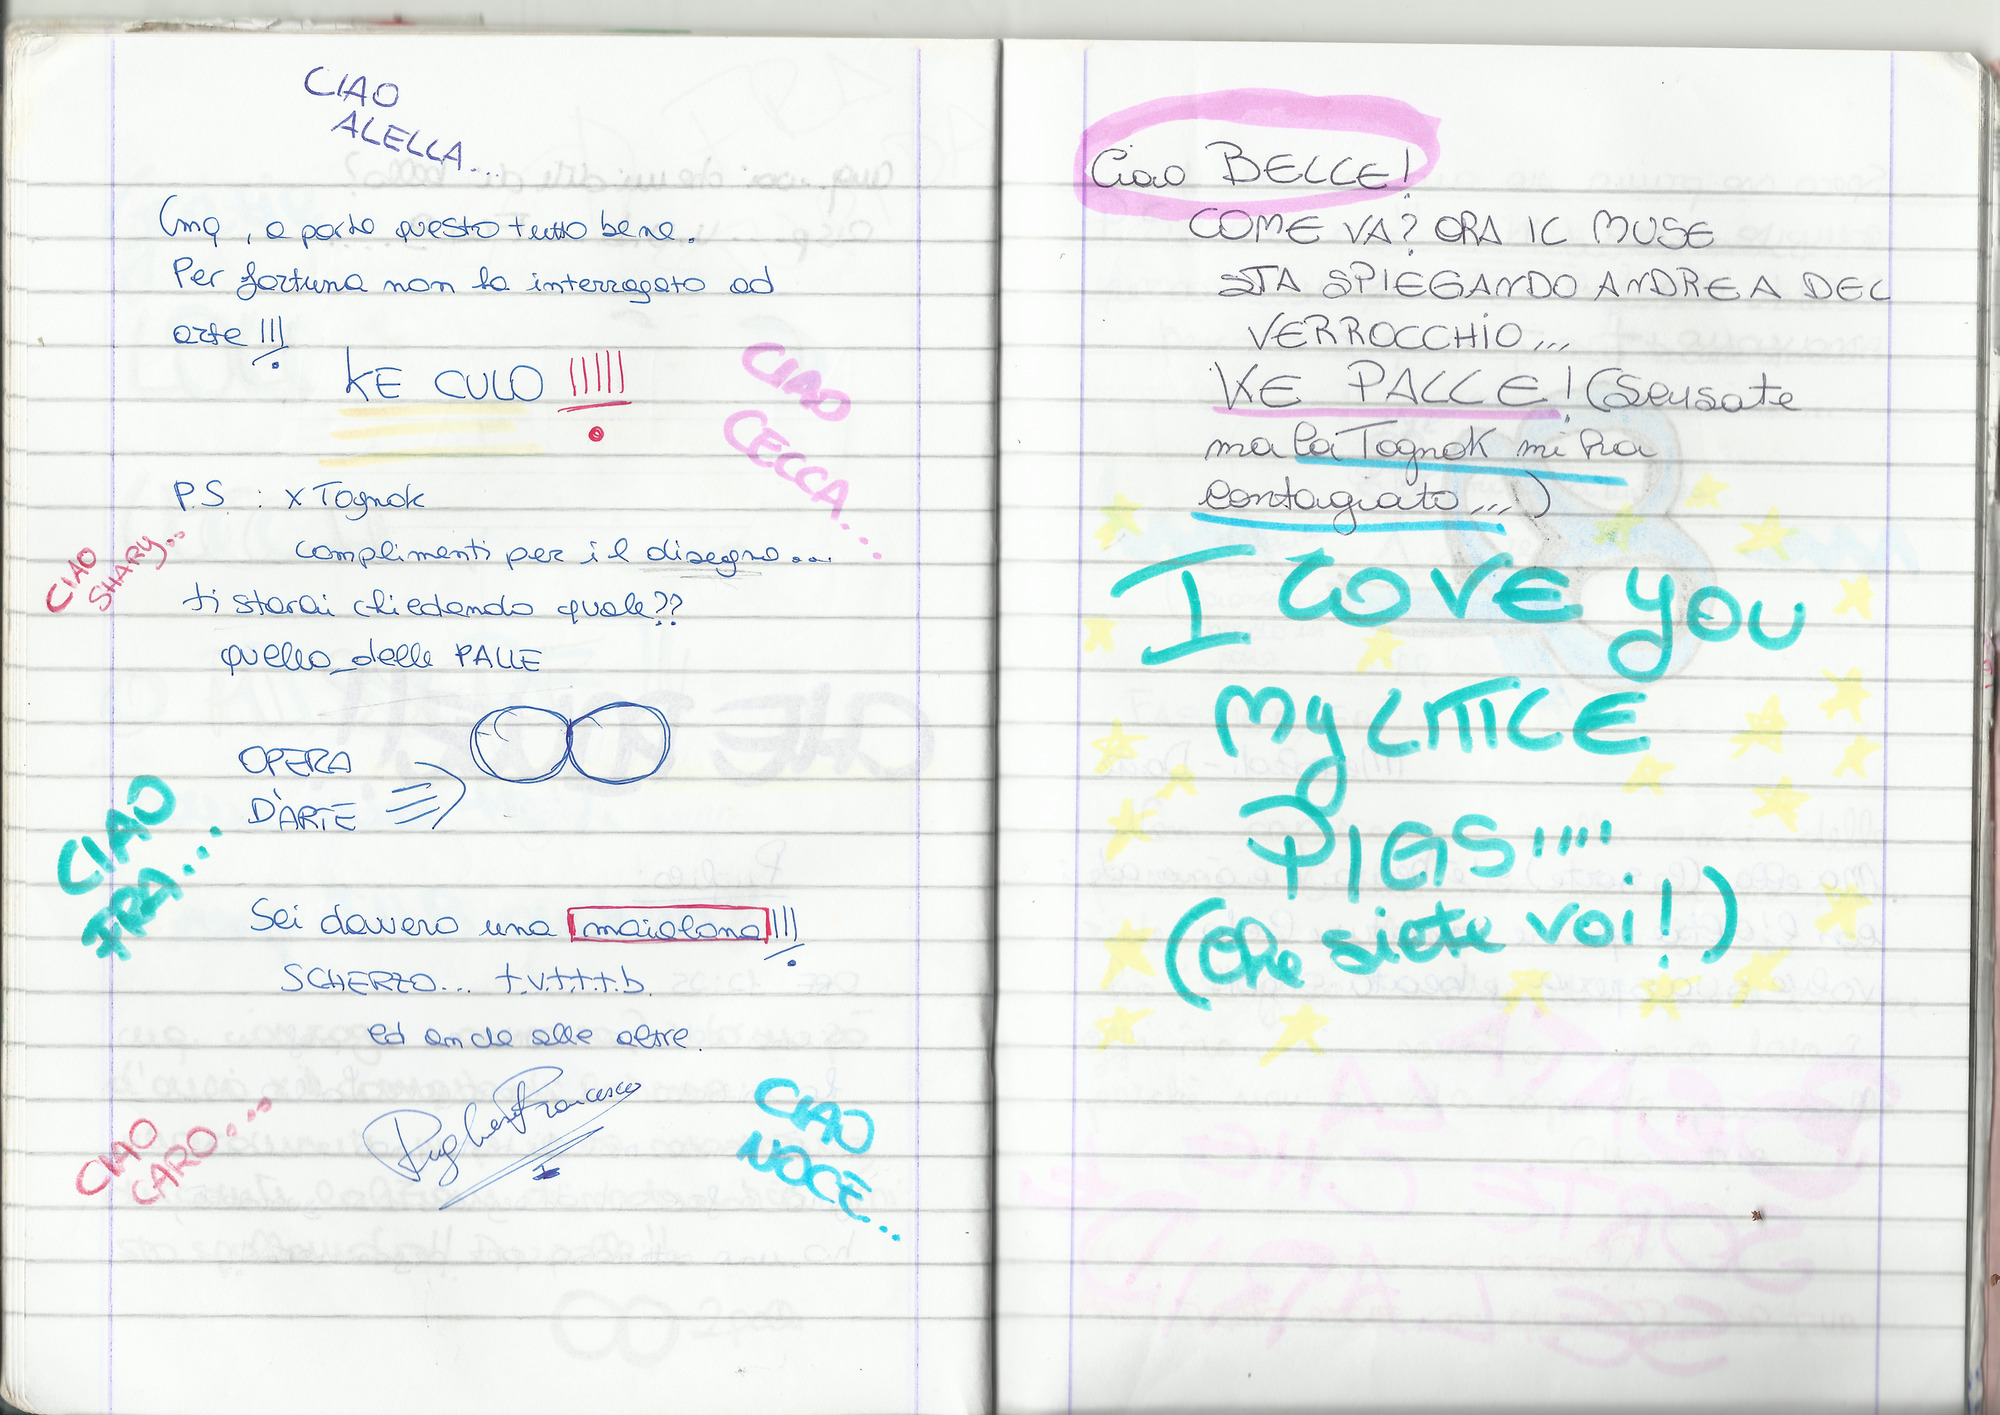 CIAO
ALELLA...
Cmq, a parte questo tutto bene.
Per fortuna non ha interrogato ad
arte !!!
KE CULO !!!!!
CIAO
CECCA...
P.S. : x Tognok
complimenti per il disegno...
CIAO
SHARY...
ti starai chiedendo quale??
quello delle PALLE
OPERA
D'ARTE
CIAO
FRA...
Sei davvero una maialona!!!
SCHERZO... t.v.t.t.t.b.
ed anche alle altre.
Francesco
CIAO
CARO....
CIAO
NOCE...
Ciao BELLE!
COME VA? ORA IL MUSE
STA SPIEGANDO ANDREA DEL
VERROCCHIO...
KE PALLE! (Scusate
ma la Tognok mi ha
contagiato...)
I LOVE YOU
My LITTLE
PIGS....
(che siete voi!)